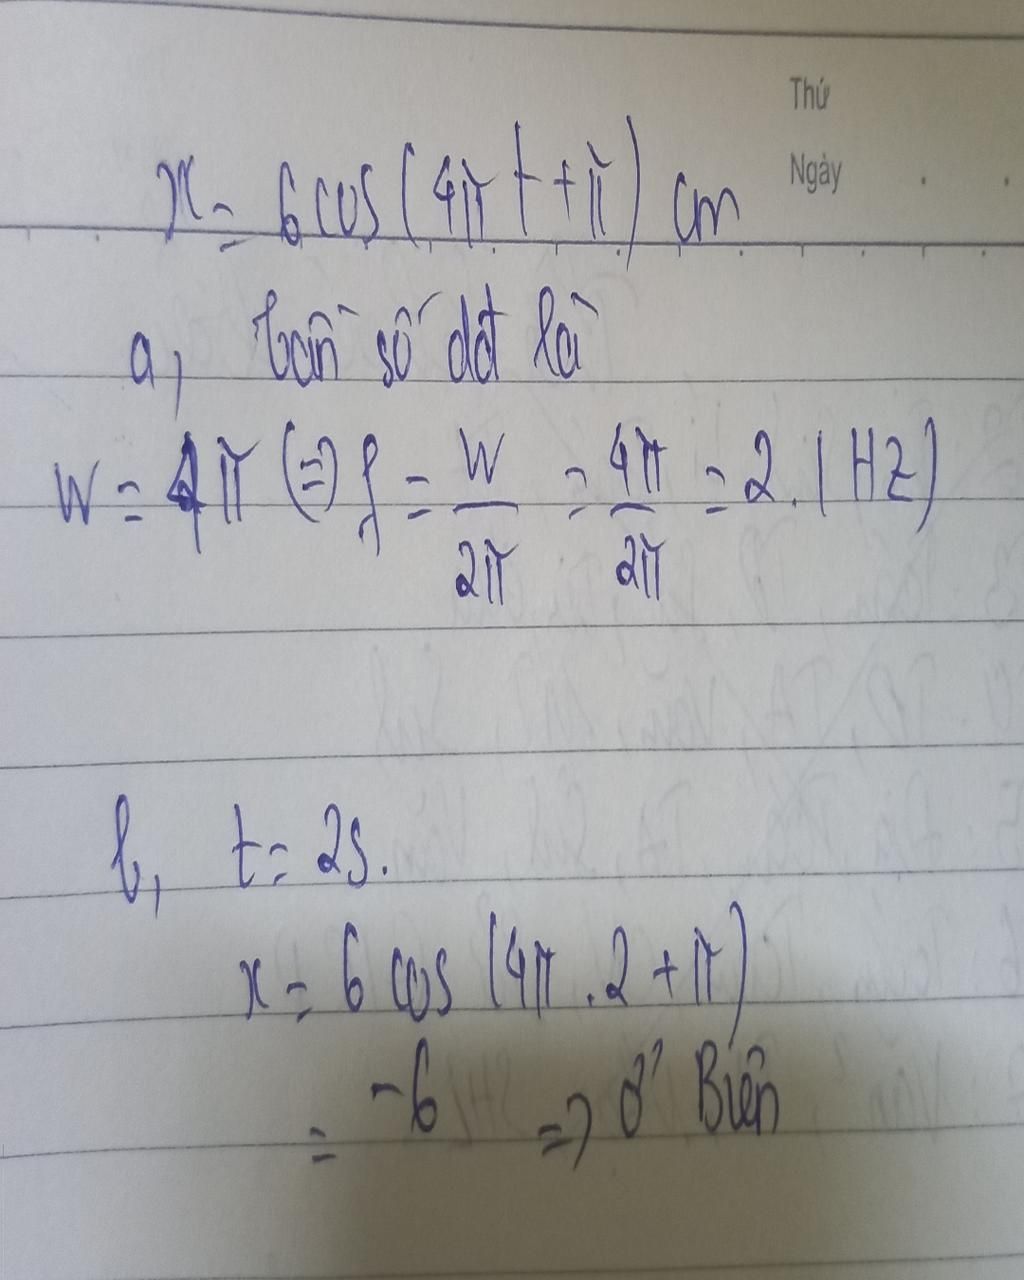 Thứ
Ngày
x = 6 cos (4π t + π) cm
a, tần số dđ là
W = 4π (=) f = W/2π = 4π/2π = 2. (HZ)
b, t = 2s.
x = 6 cos (4π . 2 + π)
= -6 => ở Biên